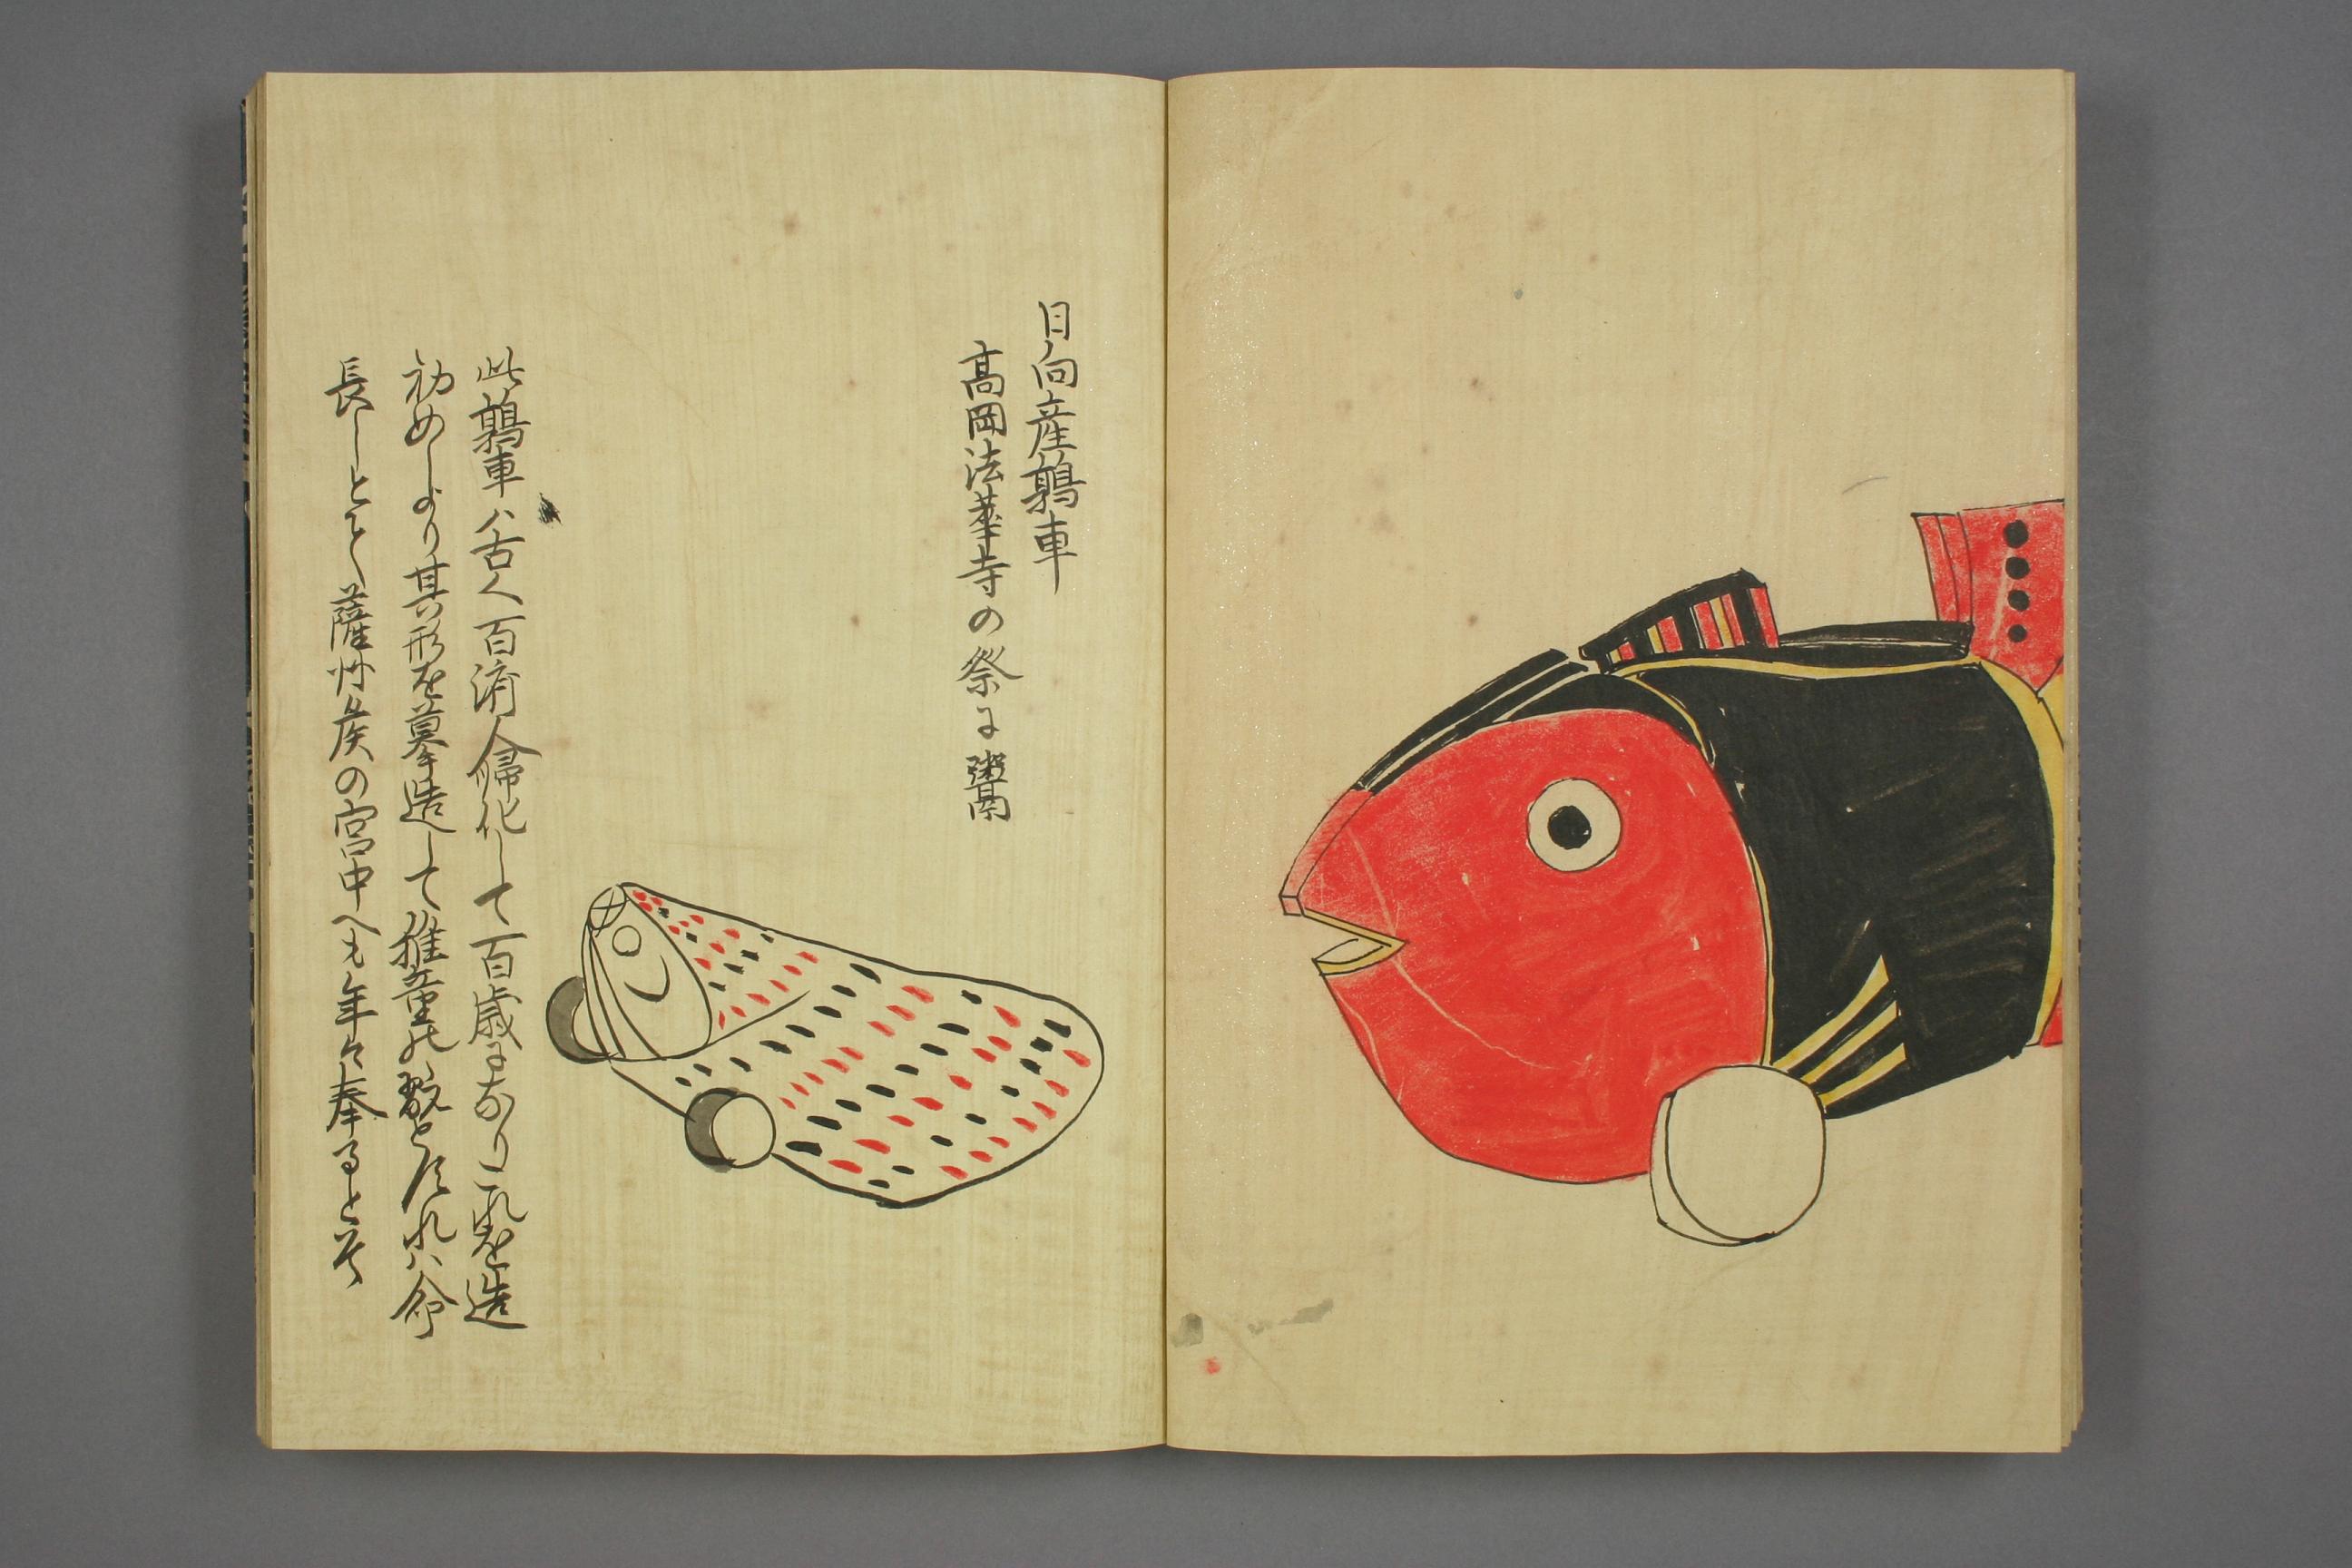 日向産鶉車
高岡法華寺の祭に鬻
此鶉車ハ古へ百済人帰化して一百歳になりこれを造
初めしより其形を摹造して稚童の翫とすれハ命
長しとて薩州侯の宮中へも年々奉るとそ